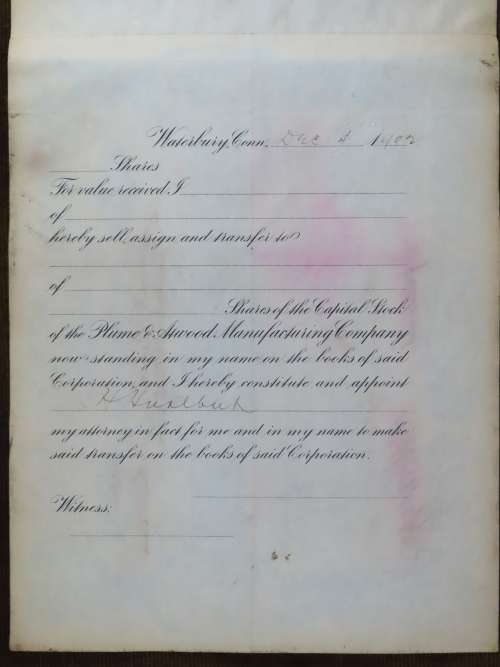 Waterbury, Conn. Dec 4 1902
Shares
For value received I
of
hereby sell, assign and transfer to
of
Shares of the Capital Stock
of the Plume & Atwood Manufacturing Company
now standing in my name on the books of said
Corporation, and I hereby constitute and appoint
my attorney in fact for me and in my name to make
said transfer on the books of said Corporation.
Witness: